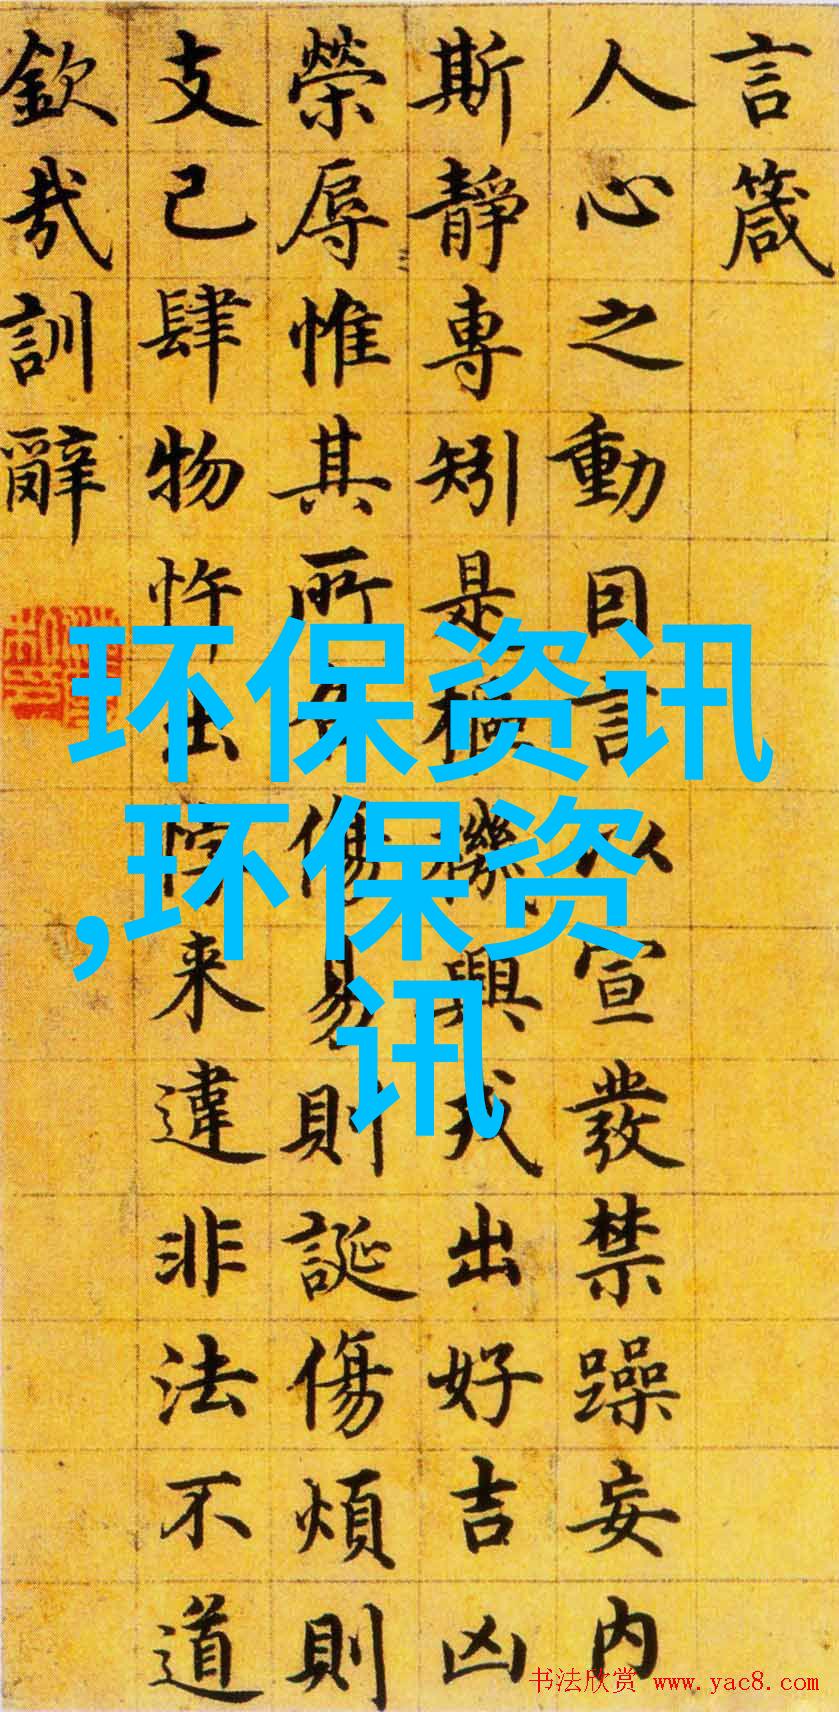 言箴
人心之動囙言以宣發禁躁妄內
斯靜專矧是樞機興戎出好吉凶
榮辱惟其所傷易則誕傷煩則
支己肆物忤出悖来違非法不道
欽哉訓辭
环保资讯
,环保资
讯
书法欣赏 www.yac8.com